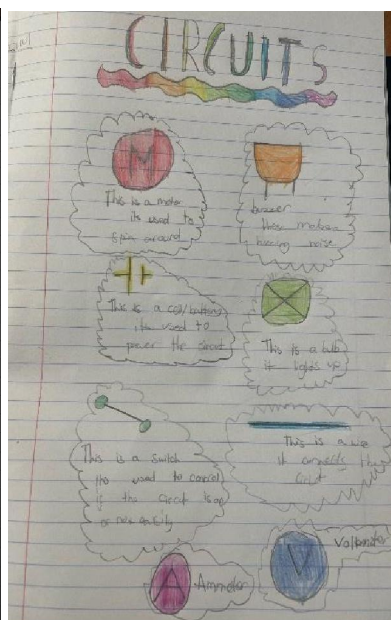 CIRCUITS
M
This is a motor
its used to
spin around
buzzer
these makes a
buzzing noise
This is a cell/battery
its used to
power the circuit
This is a bulb
it lights up
This is a switch
its used to control
if the circit is on
or not
This is a wire
it connects the
circuit
A
Ammeter
V